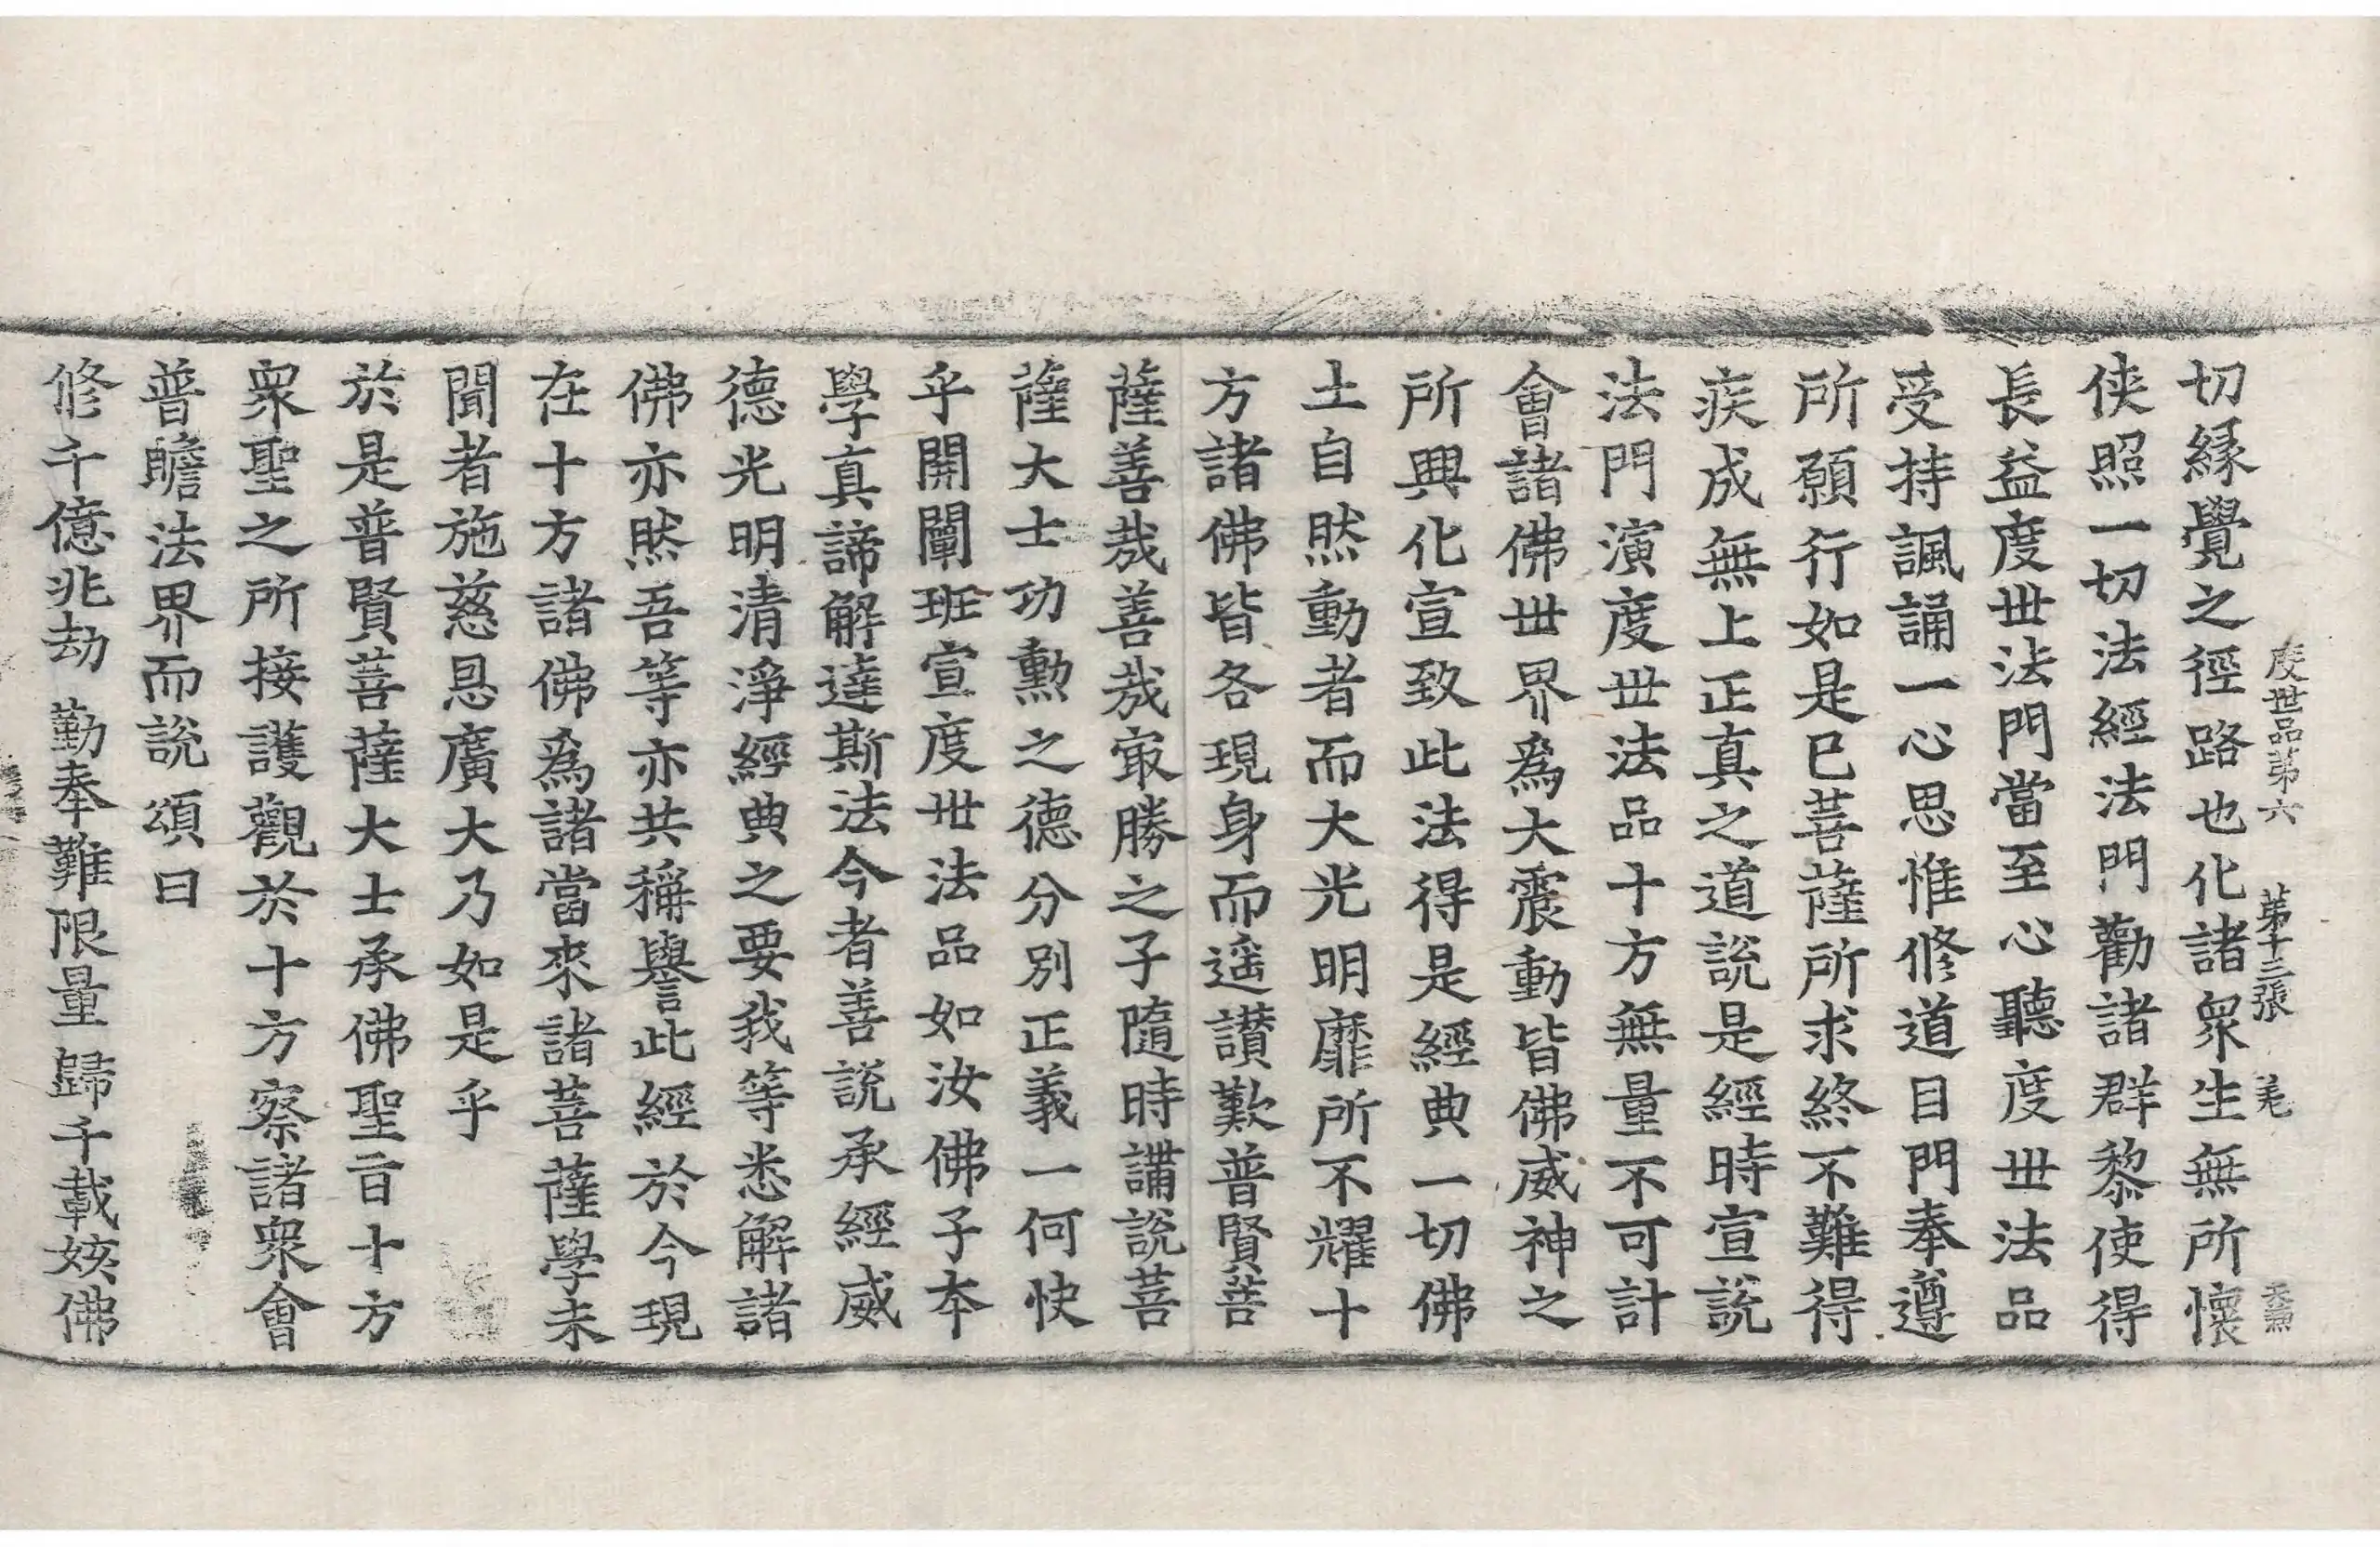 度世品第六　第十三張　羌
切縁覺之徑路也化諸衆生無所懷
侠照一切法經法門勸諸群黎使得
長益度世法門當至心聽度世法品
受持諷誦一心思惟修道目門奉遵
所願行如是已菩薩所求終不難得
疾成無上正真之道說是經時宣說
法門演度世法品十方無量不可計
會諸佛世界為大震動皆佛威神之
所興化宣致此法得是經典一切佛
土自然動者而大光明靡所不耀十
方諸佛皆各現身而遥讃歎普賢菩
薩善哉善哉冣勝之子隨時講說菩
薩大士功勲之德分別正義一何快
乎開闡班宣度世法品如汝佛子本
學真諦解達斯法今者善說承經威
德光明清淨經典之要我等悉解諸
佛亦然吾等亦共稱譽此經於今現
在十方諸佛為諸當來諸菩薩學未
聞者施慈恩廣大乃如是乎
於是普賢菩薩大士承佛聖旨十方
衆聖之所接護觀於十方察諸衆會
普瞻法界而說頌曰
修千億兆劫　勤奉難限量　歸千載姟佛